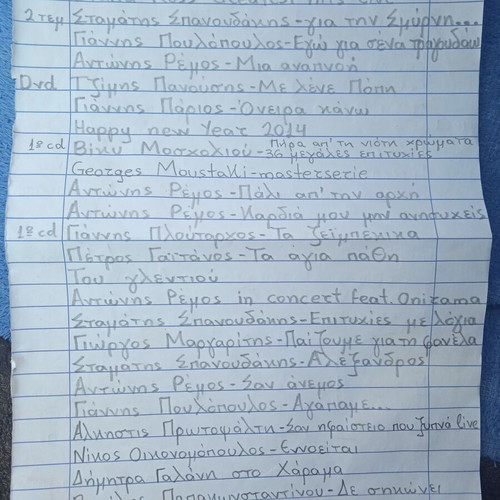 2 τεμ Σταμάτης Σπανουδάκης-για την Σμύρνη...
Γιάννης Πουλόπουλος-Εγώ για σένα τραγουδάω
Αντώνης Ρέμος-Μια αναπνοή
Dvd Τζίμης Πανούσης-Με λένε Πόπη
Γιάννης Πάριος-Όνειρα κάνω
Happy new Year 2014
1º cd Βίκυ Μοσχολιού-36 μεγάλες επιτυχίες πήρα απ' τη νιότη χρώματα
Georges Moustaki-masterserie
Αντώνης Ρέμος-Πάλι απ' την αρχή
Αντώνης Ρέμος-Καρδιά μου μην ανησυχείς
1º cd Γιάννης Πλούταρχος-Τα ζεϊμπέκικα
Πέτρος Γαϊτάνος-Τα άγια πάθη
Του γλεντιού
Αντώνης Ρέμος in concert feat. Onirama
Σταμάτης Σπανουδάκης-Επιτυχίες με λόγια
Γιώργος Μαργαρίτης-Παίζουμε για τη φανέλα
Σταματης Σπανουδάκης-Αλέξανδρος
Αντώνης Ρέμος-Σαν άνεμος
Γιάννης Πουλόπουλος-Αγάπαμε...
Αλκηστις Πρωτοψάλτη-Σαν ηφαίστειο που ξυπνά live
Νίκος Οικονομόπουλος-Εννοείται
Δήμητρα Γαλάνη στο Χάραμα
Παπακωνσταντίνου-Δε σηκώνει